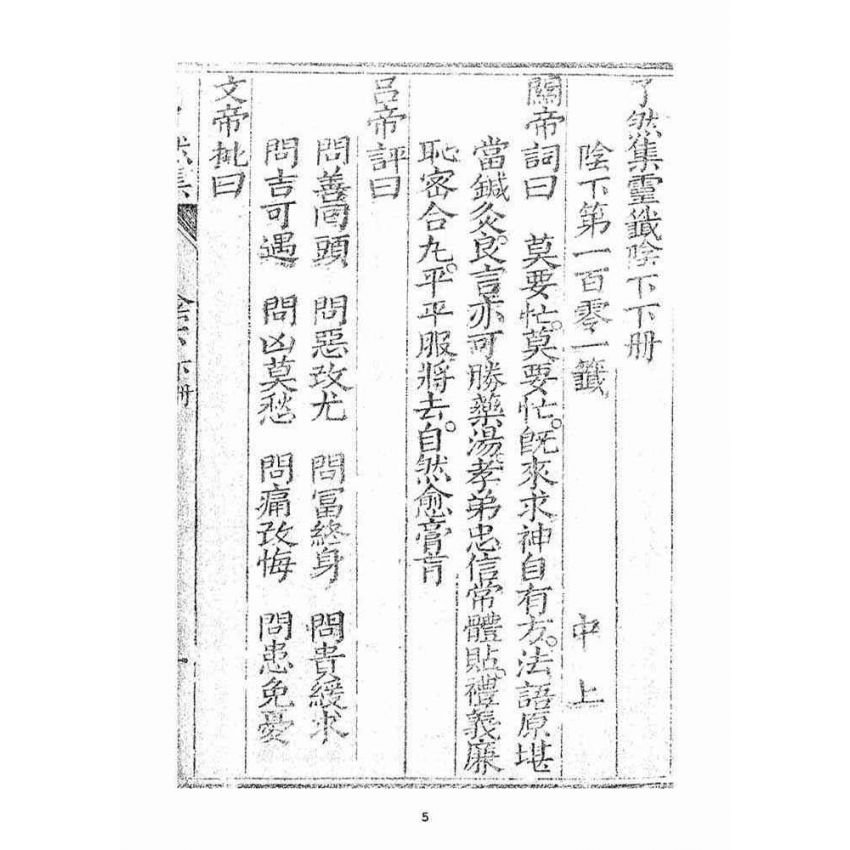 了然集靈籤陰下下册
陰下第一百零一籤 中上
關帝詞曰 莫要忙。莫要忙。旣來求神自有方。法語原堪
當鍼灸。良言亦可勝藥湯。孝弟忠信常體貼。禮義廉
恥密合丸。平平服將去。自然愈膏肓
呂帝評曰
問善回頭 問惡攻尤 問冨終身 問貴緩求
問吉可遇 問凶莫愁 問痛攻悔 問患免憂
文帝批曰
5